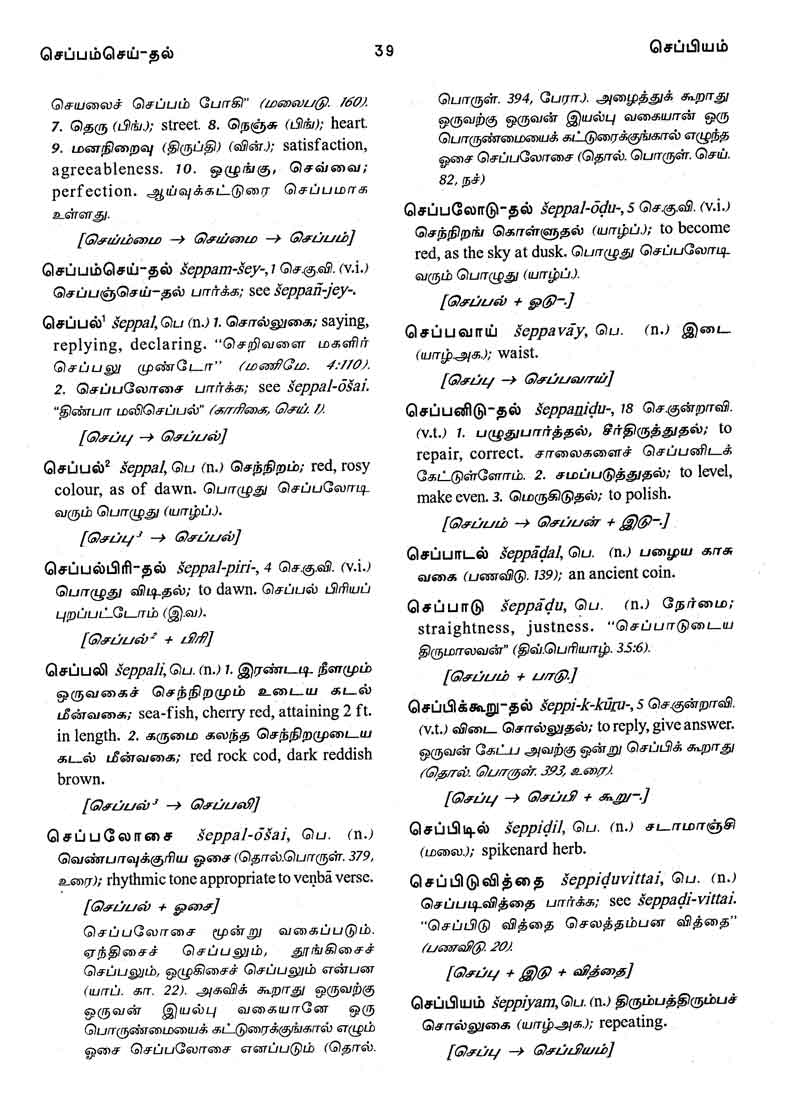 செப்பம்செய்-தல்
39
செப்பியம்
செயலைச் செப்பம் போகி" (மலைபடு. 160).
7. தெரு (பிங்.); street. 8. நெஞ்சு (பிங்); heart.
9. மனநிறைவு (திருப்தி) (வின்.); satisfaction,
agreeableness. 10. ஒழுங்கு, செவ்வை;
perfection. ஆய்வுக்கட்டுரை செப்பமாக
உள்ளது.
[செய்ம்மை → செய்மை → செப்பம்]
செப்பம்செய்-தல் šeppam-šey-, 1 செ.கு.வி. (v.i.)
செப்பஞ்செய்-தல் பார்க்க; see šeppañ-jey-.
செப்பல்¹ šeppal, பெ (n.) 1. சொல்லுகை; saying,
replying, declaring. "செறிவளை மகளிர்
செப்பலு முண்டோ" (மணிமே. 4:110).
2. செப்பலோசை பார்க்க; see šeppal-ōšai.
"திண்பா மலிசெப்பல்" (காரிகை, செய். 1).
[செப்பு → செப்பல்]
செப்பல்² šeppal, பெ (n.) செந்நிறம்; red, rosy
colour, as of dawn. பொழுது செப்பலோடி
வரும் பொழுது (யாழ்ப்.).
[செப்பு³ → செப்பல்]
செப்பல்பிரி-தல் šeppal-piri-, 4 செ.கு.வி. (v.i.)
பொழுது விடிதல்; to dawn. செப்பல் பிரியப்
புறப்பட்டோம் (இ.வ).
[செப்பல்² + பிரி]
செப்பலி šeppali, பெ. (n.) 1. இரண்டடி நீளமும்
ஒருவகைச் செந்நிறமும் உடைய கடல்
மீன்வகை; sea-fish, cherry red, attaining 2 ft.
in length. 2. கருமை கலந்த செந்நிறமுடைய
கடல் மீன்வகை; red rock cod, dark reddish
brown.
[செப்பல்³ → செப்பலி]
செப்பலோசை šeppal-ōšai, பெ. (n.)
வெண்பாவுக்குரிய ஓசை (தொல்.பொருள். 379,
உரை); rhythmic tone appropriate to veṇbā verse.
[செப்பல் + ஓசை]
செப்பலோசை மூன்று வகைப்படும்.
ஏந்திசைச் செப்பலும், தூங்கிசைச்
செப்பலும், ஒழுகிசைச் செப்பலும் என்பன
(யாப். கா. 22). அகவிக் கூறாது ஒருவற்கு
ஒருவன் இயல்பு வகையானே ஒரு
பொருண்மையைக் கட்டுரைக்குங்கால் எழும்
ஓசை செப்பலோசை எனப்படும் (தொல்.
பொருள். 394, பேரா.). அழைத்துக் கூறாது
ஒருவற்கு ஒருவன் இயல்பு வகையான் ஒரு
பொருண்மையைக் கட்டுரைக்குங்கால் எழுந்த
ஓசை செப்பலோசை (தொல். பொருள். செய்.
82, நச்)
செப்பலோடு-தல் šeppal-ōḍu-, 5 செ.கு.வி. (v.i.)
செந்நிறங் கொள்ளுதல் (யாழ்ப்.); to become
red, as the sky at dusk. பொழுது செப்பலோடி
வரும் பொழுது (யாழ்ப்.).
[செப்பல் + ஓடு-.]
செப்பவாய் šeppavāy, பெ. (n.) இடை
(யாழ்.அக.); waist.
[செப்பு → செப்பவாய்]
செப்பனிடு-தல் šeppaṉiḍu-, 18 செ.குன்றாவி.
(v.t.) 1. பழுதுபார்த்தல், சீர்திருத்துதல்; to
repair, correct. சாலைகளைச் செப்பனிடக்
கேட்டுள்ளோம். 2. சமப்படுத்துதல்; to level,
make even. 3. மெருகிடுதல்; to polish.
[செப்பம் → செப்பன் + இடு-.]
செப்பாடல் šeppāḍal, பெ. (n.) பழைய காசு
வகை (பணவிடு. 139); an ancient coin.
செப்பாடு šeppāḍu, பெ. (n.) நேர்மை;
straightness, justness. "செப்பாடுடைய
திருமாலவன்" (திவ்.பெரியாழ். 3.5:6).
[செப்பம் + பாடு.]
செப்பிக்கூறு-தல் šeppi-k-kūṟu-, 5 செ.குன்றாவி.
(v.t.) விடை சொல்லுதல்; to reply, give answer.
ஒருவன் கேட்ப அவற்கு ஒன்று செப்பிக் கூறாது
(தொல். பொருள். 393, உரை).
[செப்பு → செப்பி + கூறு-.]
செப்பிடில் šeppiḍil, பெ. (n.) சடாமாஞ்சி
(மலை.); spikenard herb.
செப்பிடுவித்தை šeppiḍuvittai, பெ. (n.)
செப்படிவித்தை பார்க்க; see šeppaḍi-vittai.
"செப்பிடு வித்தை செலத்தம்பன வித்தை"
(பணவிடு. 20).
[செப்பு + இடு + வித்தை]
செப்பியம் šeppiyam, பெ. (n.) திரும்பத்திரும்பச்
சொல்லுகை (யாழ்.அக.); repeating.
[செப்பு → செப்பியம்]